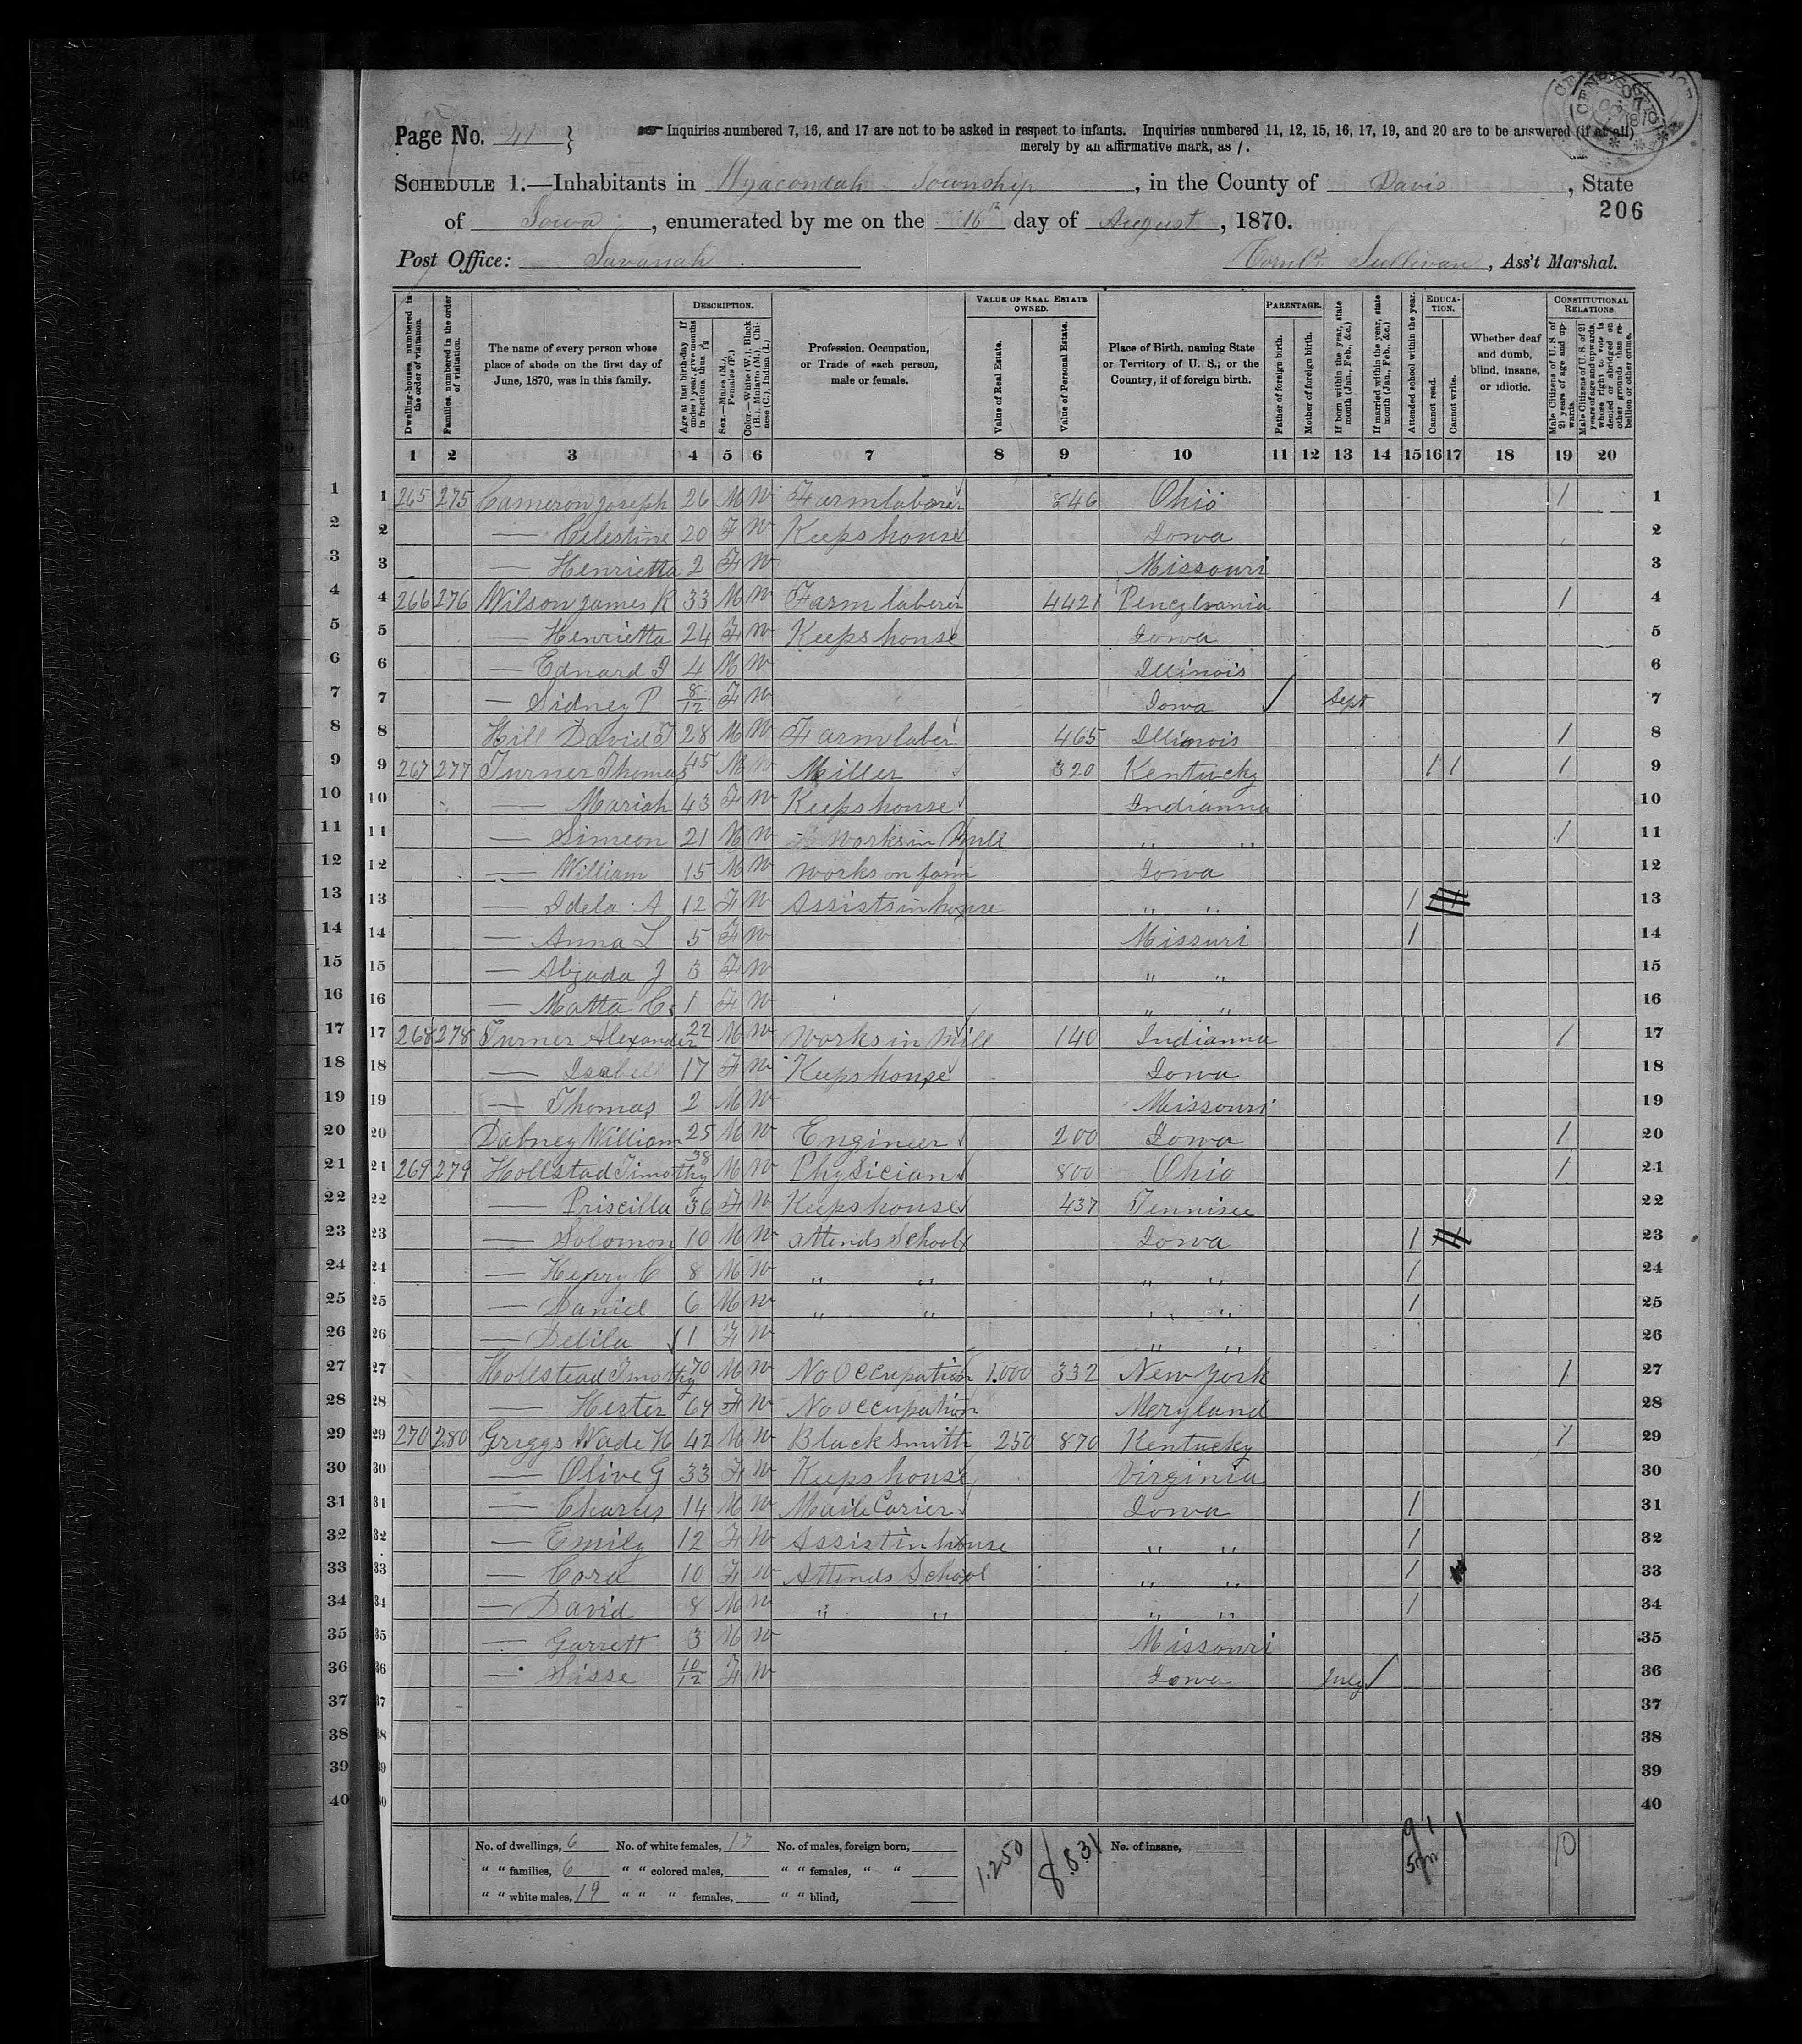 Page No. 41 }
Inquiries numbered 7, 16, and 17 are not to be asked in respect to infants. Inquiries numbered 11, 12, 15, 16, 17, 19, and 20 are to be answered (if at all)
merely by an affirmative mark, as /.
SCHEDULE 1.—Inhabitants in Wyacondah Township, in the County of Davis, State
206
of Iowa, enumerated by me on the 16th day of August, 1870.
Post Office: Savanah. Cornls. Sullivan, Ass't Marshal.
Dwelling-houses, numbered in the order of visitation.
Families, numbered in the order of visitation.
The name of every person whose place of abode on the first day of June, 1870, was in this family.
DESCRIPTION.
Age at last birth-day. If under 1 year, give months in fractions, thus 3/12
Sex.—Males (M.), Females (F.)
Color.—White (W.), Black (B.), Mulatto (M.), Chinese (C.), Indian (I.)
Profession, Occupation, or Trade of each person, male or female.
VALUE OF REAL ESTATE OWNED.
Value of Real Estate.
Value of Personal Estate.
Place of Birth, naming State or Territory of U. S.; or the Country, if of foreign birth.
PARENTAGE.
Father of foreign birth.
Mother of foreign birth.
If born within the year, state month (Jan., Feb., &c.)
If married within the year, state month (Jan., Feb., &c.)
Attended school within the year.
EDUCATION.
Cannot read.
Cannot write.
Whether deaf and dumb, blind, insane, or idiotic.
CONSTITUTIONAL RELATIONS.
Male Citizens of U. S. of 21 years of age and upwards.
Male Citizens of U. S. of 21 years of age and upwards, whose right to vote is denied or abridged on other grounds than rebellion or other crime.
1 2 3 4 5 6 7 8 9 10 11 12 13 14 15 16 17 18 19 20
1 265 275 Cameron Joseph 26 M W Farm laborer 846 Ohio / 1
2 — Celestine 20 F W Keeps house Iowa 2
3 — Henrietta 2 F W Missouri 3
4 266 276 Wilson James R 33 M W Farm laberer 4421 Pencylvania / 4
5 — Henrietta 24 F W Keeps house Iowa 5
6 — Edward 4 M W Illinois 6
7 — Sidney P 8/12 F W Iowa Sept 7
8 Hill David T 28 M W Farm laber 465 Illinois / 8
9 267 277 Turner Thomas 45 M W Miller 320 Kentucky / / / 9
10 — Mariah 43 F W Keeps house Indianna 10
11 — Simeon 21 M W works in Mill " " / 11
12 — William 15 M W works on farm Iowa 12
13 — Idela A 12 F W Assists in house " " / 13
14 — Anna L 5 F W Missuri / 14
15 — Alzada J 3 F W " " 15
16 — Matta C. 1 F W " " 16
17 268 278 Turner Alexander 22 M W Works in Mill 140 Indianna / 17
18 — Isabell 17 F W Keeps house Iowa 18
19 — Thomas 2 M W Missouri 19
20 Dabney William 25 M W Engineer 200 Iowa / 20
21 269 279 Hollstad Timothy 38 M W Physician 800 Ohio / 21
22 — Priscilla 36 F W Keeps house 437 Tennisee 22
23 — Solomon 10 M W attends School Iowa / 23
24 — Henry C 8 M W " " " " / 24
25 — Daniel 6 M W " " " " / 25
26 — Delila 1 F W " " 26
27 Hollstead Timothy 70 M W No Occupation 1.000 332 New York / 27
28 — Hester 64 F W No Occupation Meryland 28
29 270 280 Griggs Wade H 42 M W Black Smith 250 870 Kentucky / 29
30 — Olive G 33 F W Keeps house Virginia 30
31 — Charles 14 M W Maile Carier Iowa / 31
32 — Emily 12 F W Assist in house " " / 32
33 — Cora 10 F W Attends School " " / 33
34 — David 8 M W " " " " / 34
35 — Garrett 3 M W Missouri 35
36 — Sisse 10/12 F W Iowa July 36
37 37
38 38
39 39
40 40
No. of dwellings, 6 No. of white females, 17 No. of males, foreign born, 1.250 8.831 No. of insane, 10
" " families, 6 " " colored males, " " females, " "
" " white males, 19 " " " females, " " blind,